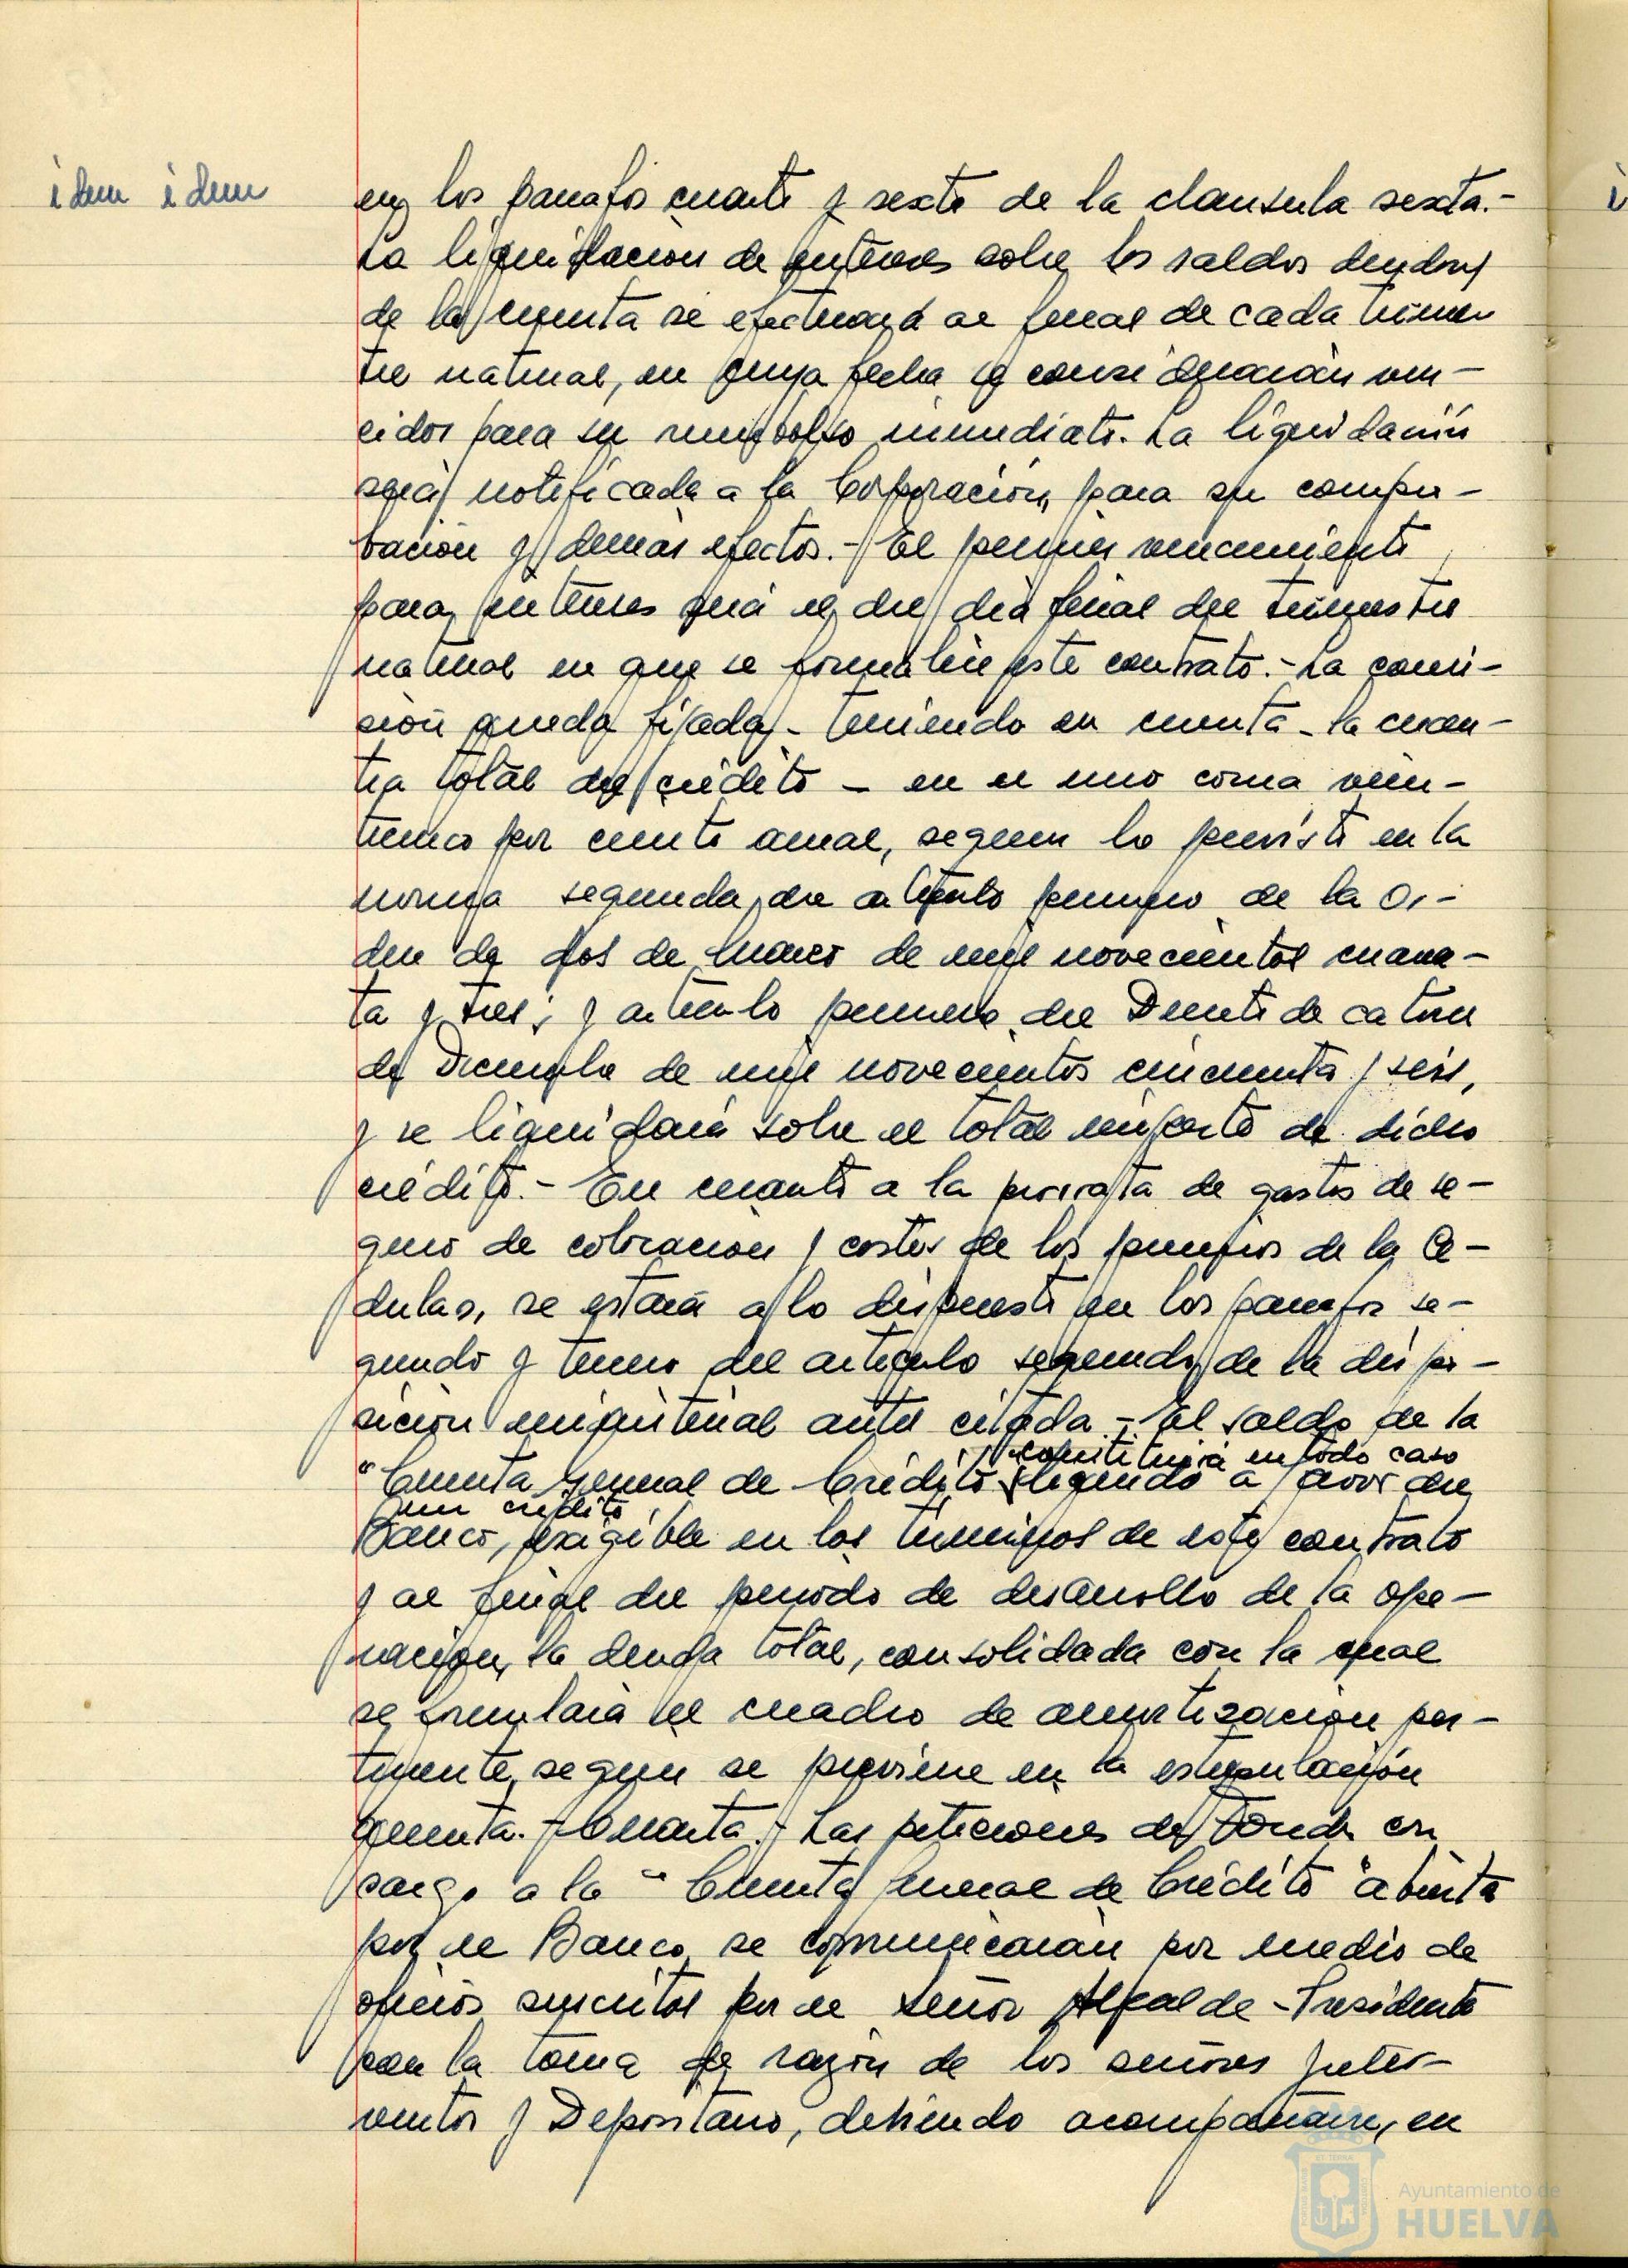 idem idem
en los parrafos cuarto y sexto de la clausula sexta.-
La liquidación de intereses sobre los saldos deudores
de la cuenta se efectuará al final de cada trimes
tre natural, en cuya fecha se considerarán ven-
cidos para su reembolso inmediato. La liquidación
será notificada a la Corporación, para su compro-
bación y demás efectos.- El primer vencimiento
para intereses será el del día final del trimestre
natural en que se formalice este contrato.- La comi-
sión queda fijada - teniendo en cuenta - la cuan-
tia total del crédito - en el uno coma vein-
ticinco por ciento anual, segun lo previsto en la
norma segunda del articulo primero de la Or-
den de dos de Marzo de mil novecientos cuaren-
ta y tres, y articulo primero del Decreto de catorce
de Diciembre de mil novecientos cincuenta y seis,
y se liquidará sobre el total importe de dicho
crédito.- En cuanto a la prorrata de gastos de se-
guro de cotización y coste de los primeros de la Cé-
dulas, se estará a lo dispuesto en los parrafos se-
gundo y tercero del articulo segundo de la dispo-
sición ministerial antes citada.- El saldo de la
constituirá en todo caso
"Cuenta General de Crédito" a favor del
un crédito
Banco, exigible en los términos de este contrato
y al final del periodo de desarrollo de la ope-
ración, la deuda total, consolidada con la cual
se formulará el cuadro de amortización per-
tinente, segun se previene en la estipulación
quinta.- Cuarta.- Las peticiones de fondos con
cargo a la "Cuenta General de Crédito" abierta
por el Banco se comunicarán por medio de
oficios suscritos por el Señor Alcalde-Presidente
con la toma de razón de los señores Inter-
ventor y Depositario, debiendo acompañarse, en
Ayuntamiento de
HUELVA